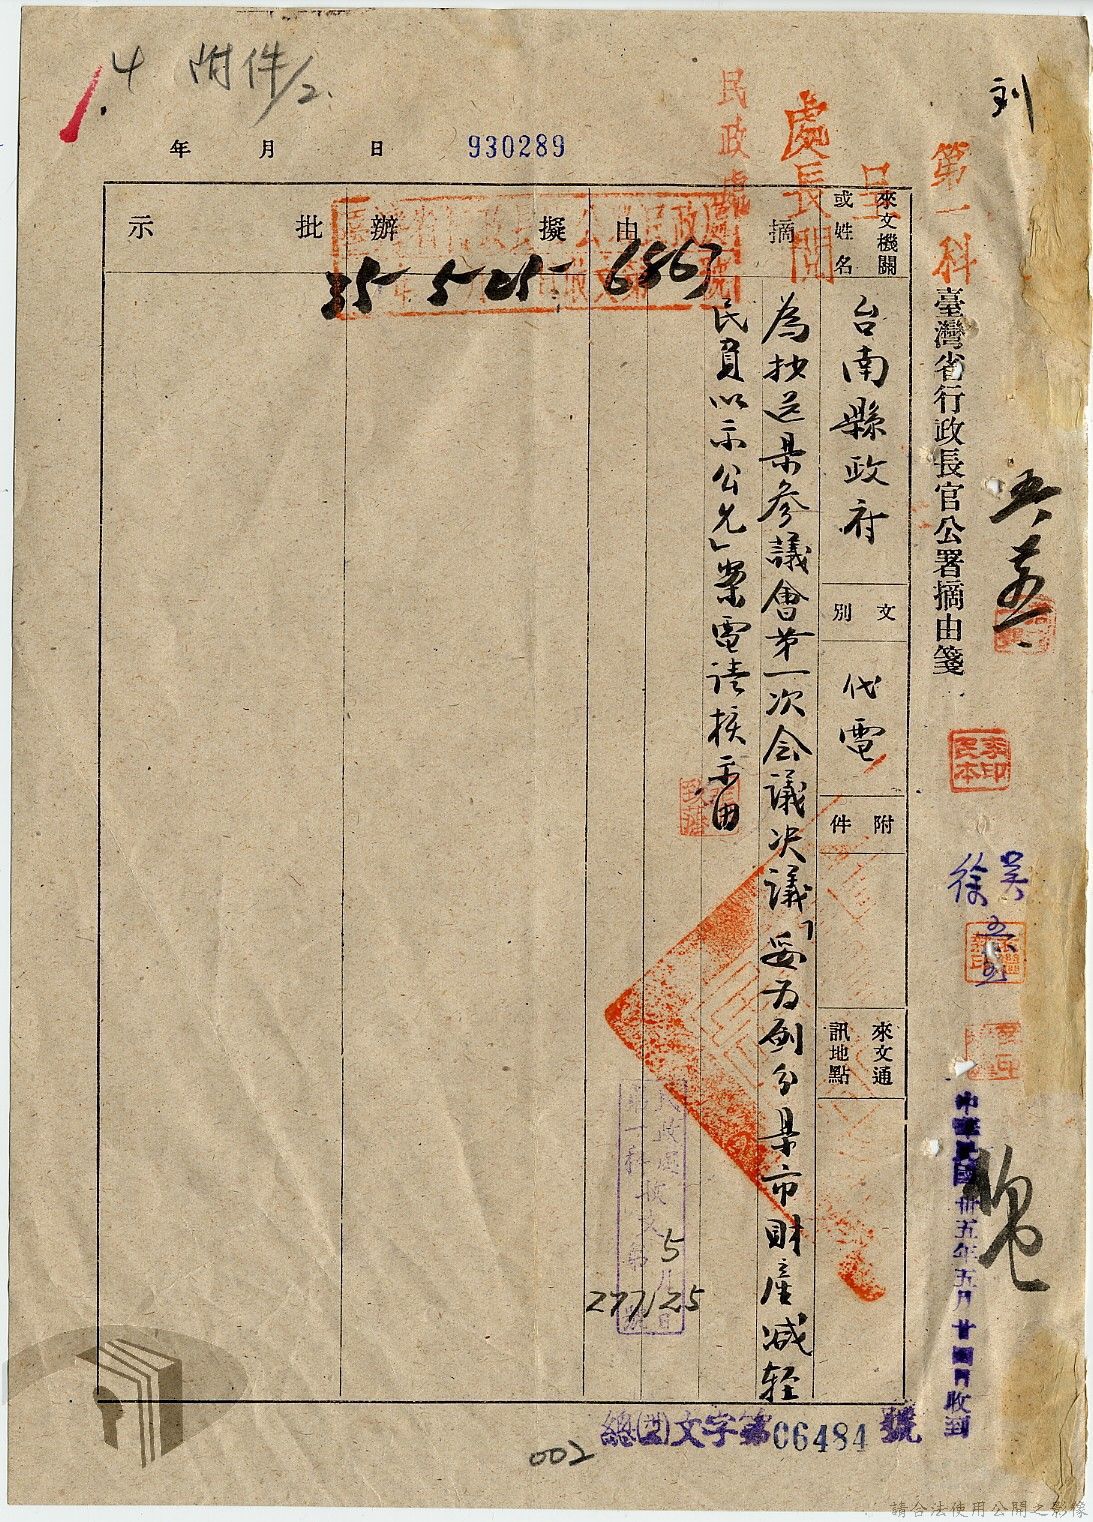 4 附件/2.
年 月 日 930289
劉
第一科
呈
處長閱
民政處
臺灣省行政長官公署摘由箋
來文機關或姓名
台南縣政府
文別
代電
附件
來文通訊地點
摘由
為抄送縣參議會第一次会議決議「妥为劃分县市財產減轻
民負以示公允」案電請核示由
擬辦
批示
35 5 25 6863
李印民本
吳
徐
中華民國卅五年五月廿四日收到
民政處
第一科收文第 號
5月25日
277
總(卅五)文字第06484號
002
請合法使用公開之影像